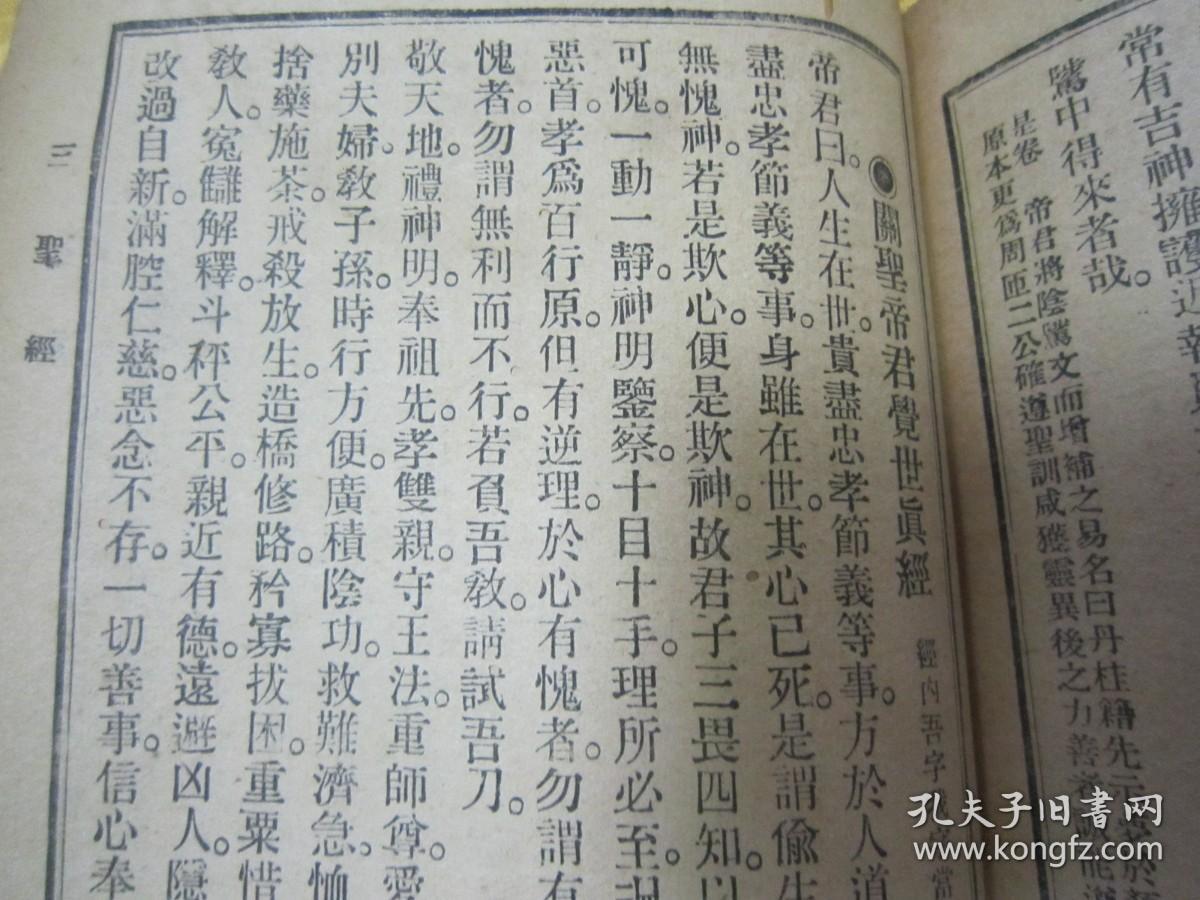 常有吉神擁護
騭中得來者哉。
是卷 帝君將陰騭文而增補之易名曰丹桂籍先示
原本更爲周匝二公確遵聖訓咸獲靈異後之力善者
關聖帝君覺世眞經 經內吾字
帝君曰。人生在世。貴盡忠孝節義等事。方於人道
盡忠孝節義等事。身雖在世。其心已死。是謂偷生
無愧神。若是欺心。便是欺神。故君子三畏四知。以
可愧。一動一靜。神明鑒察。十目十手。理所必至。
惡首。孝爲百行原。但有逆理。於心有愧者。勿謂有
愧者。勿謂無利而不行。若負吾教。請試吾刀。
敬天地。禮神明。奉祖先。孝雙親。守王法。重師尊。愛
別夫婦。教子孫。時行方便。廣積陰功。救難濟急。恤
捨藥施茶。戒殺放生。造橋修路。矜寡拔困。重粟惜
教人。冤讎解釋。斗秤公平。親近有德。遠避凶人。隱
改過自新。滿腔仁慈。惡念不存。一切善事。信心奉
三聖經
孔夫子旧書网
www.kongfz.com